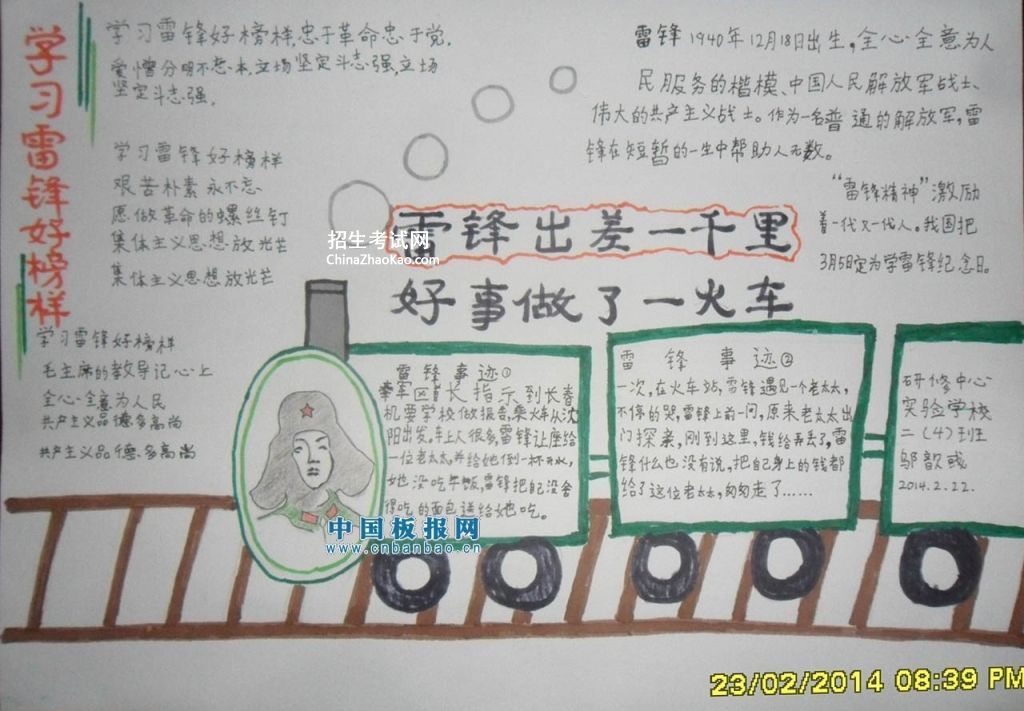 学习雷锋好榜样
学习雷锋好榜样,忠于革命忠于党.
爱憎分明不忘本,立场坚定斗志强,立场
坚定斗志强.
学习雷锋好榜样
艰苦朴素永不忘
愿做革命的螺丝钉
集体主义思想放光芒
集体主义思想放光芒
学习雷锋好榜样
毛主席的教导记心上
全心全意为人民
共产主义品德多高尚
共产主义品德多高尚
雷锋1940年12月18日出生,全心全意为人
民服务的楷模、中国人民解放军战士、
伟大的共产主义战士。作为一名普通的解放军,雷
锋在短暂的一生中帮助人无数。
“雷锋精神”激励
着一代又一代人。我国把
3月5日定为学雷锋纪念日。
雷锋出差一千里
好事做了一火车
招生考试网
ChinaZhaoKao.com
雷锋事迹①
军区首长指示到长春
机要学校做报告,乘火车从沈
阳出发,车上人很多,雷锋让座给
一位老太太,并给她倒一杯开水,
她没吃午饭,雷锋把自己没舍
得吃的面包送给她吃。
雷锋事迹②
一次,在火车站,雷锋遇见一个老太太,
不停的哭,雷锋上前一问,原来老太太出
门探亲,刚到这里,钱给弄丢了,雷
锋什么也没有说,把自己身上的钱都
给了这位老太太,匆匆走了……
研修中心
实验学校
二(4)班
邬歆
2014.2.22.
中国板报网
www.cnbanbao.cn
23/02/2014 08:39 PM